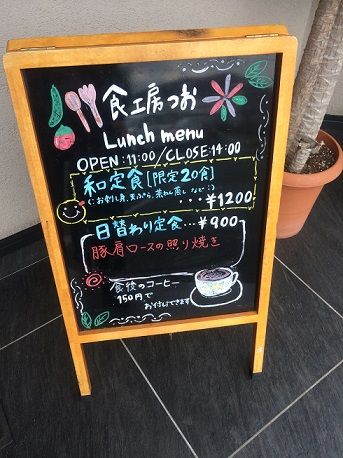 食工房つお
Lunch menu
OPEN:11:00/CLOSE:14:00
和定食[限定20食]
(:お刺し身、天ぷら、茶わん蒸し など:)
・・・¥1200
日替わり定食・・・¥900
豚肩ロースの照り焼き
食後のコーヒー
150円で
お付けできます